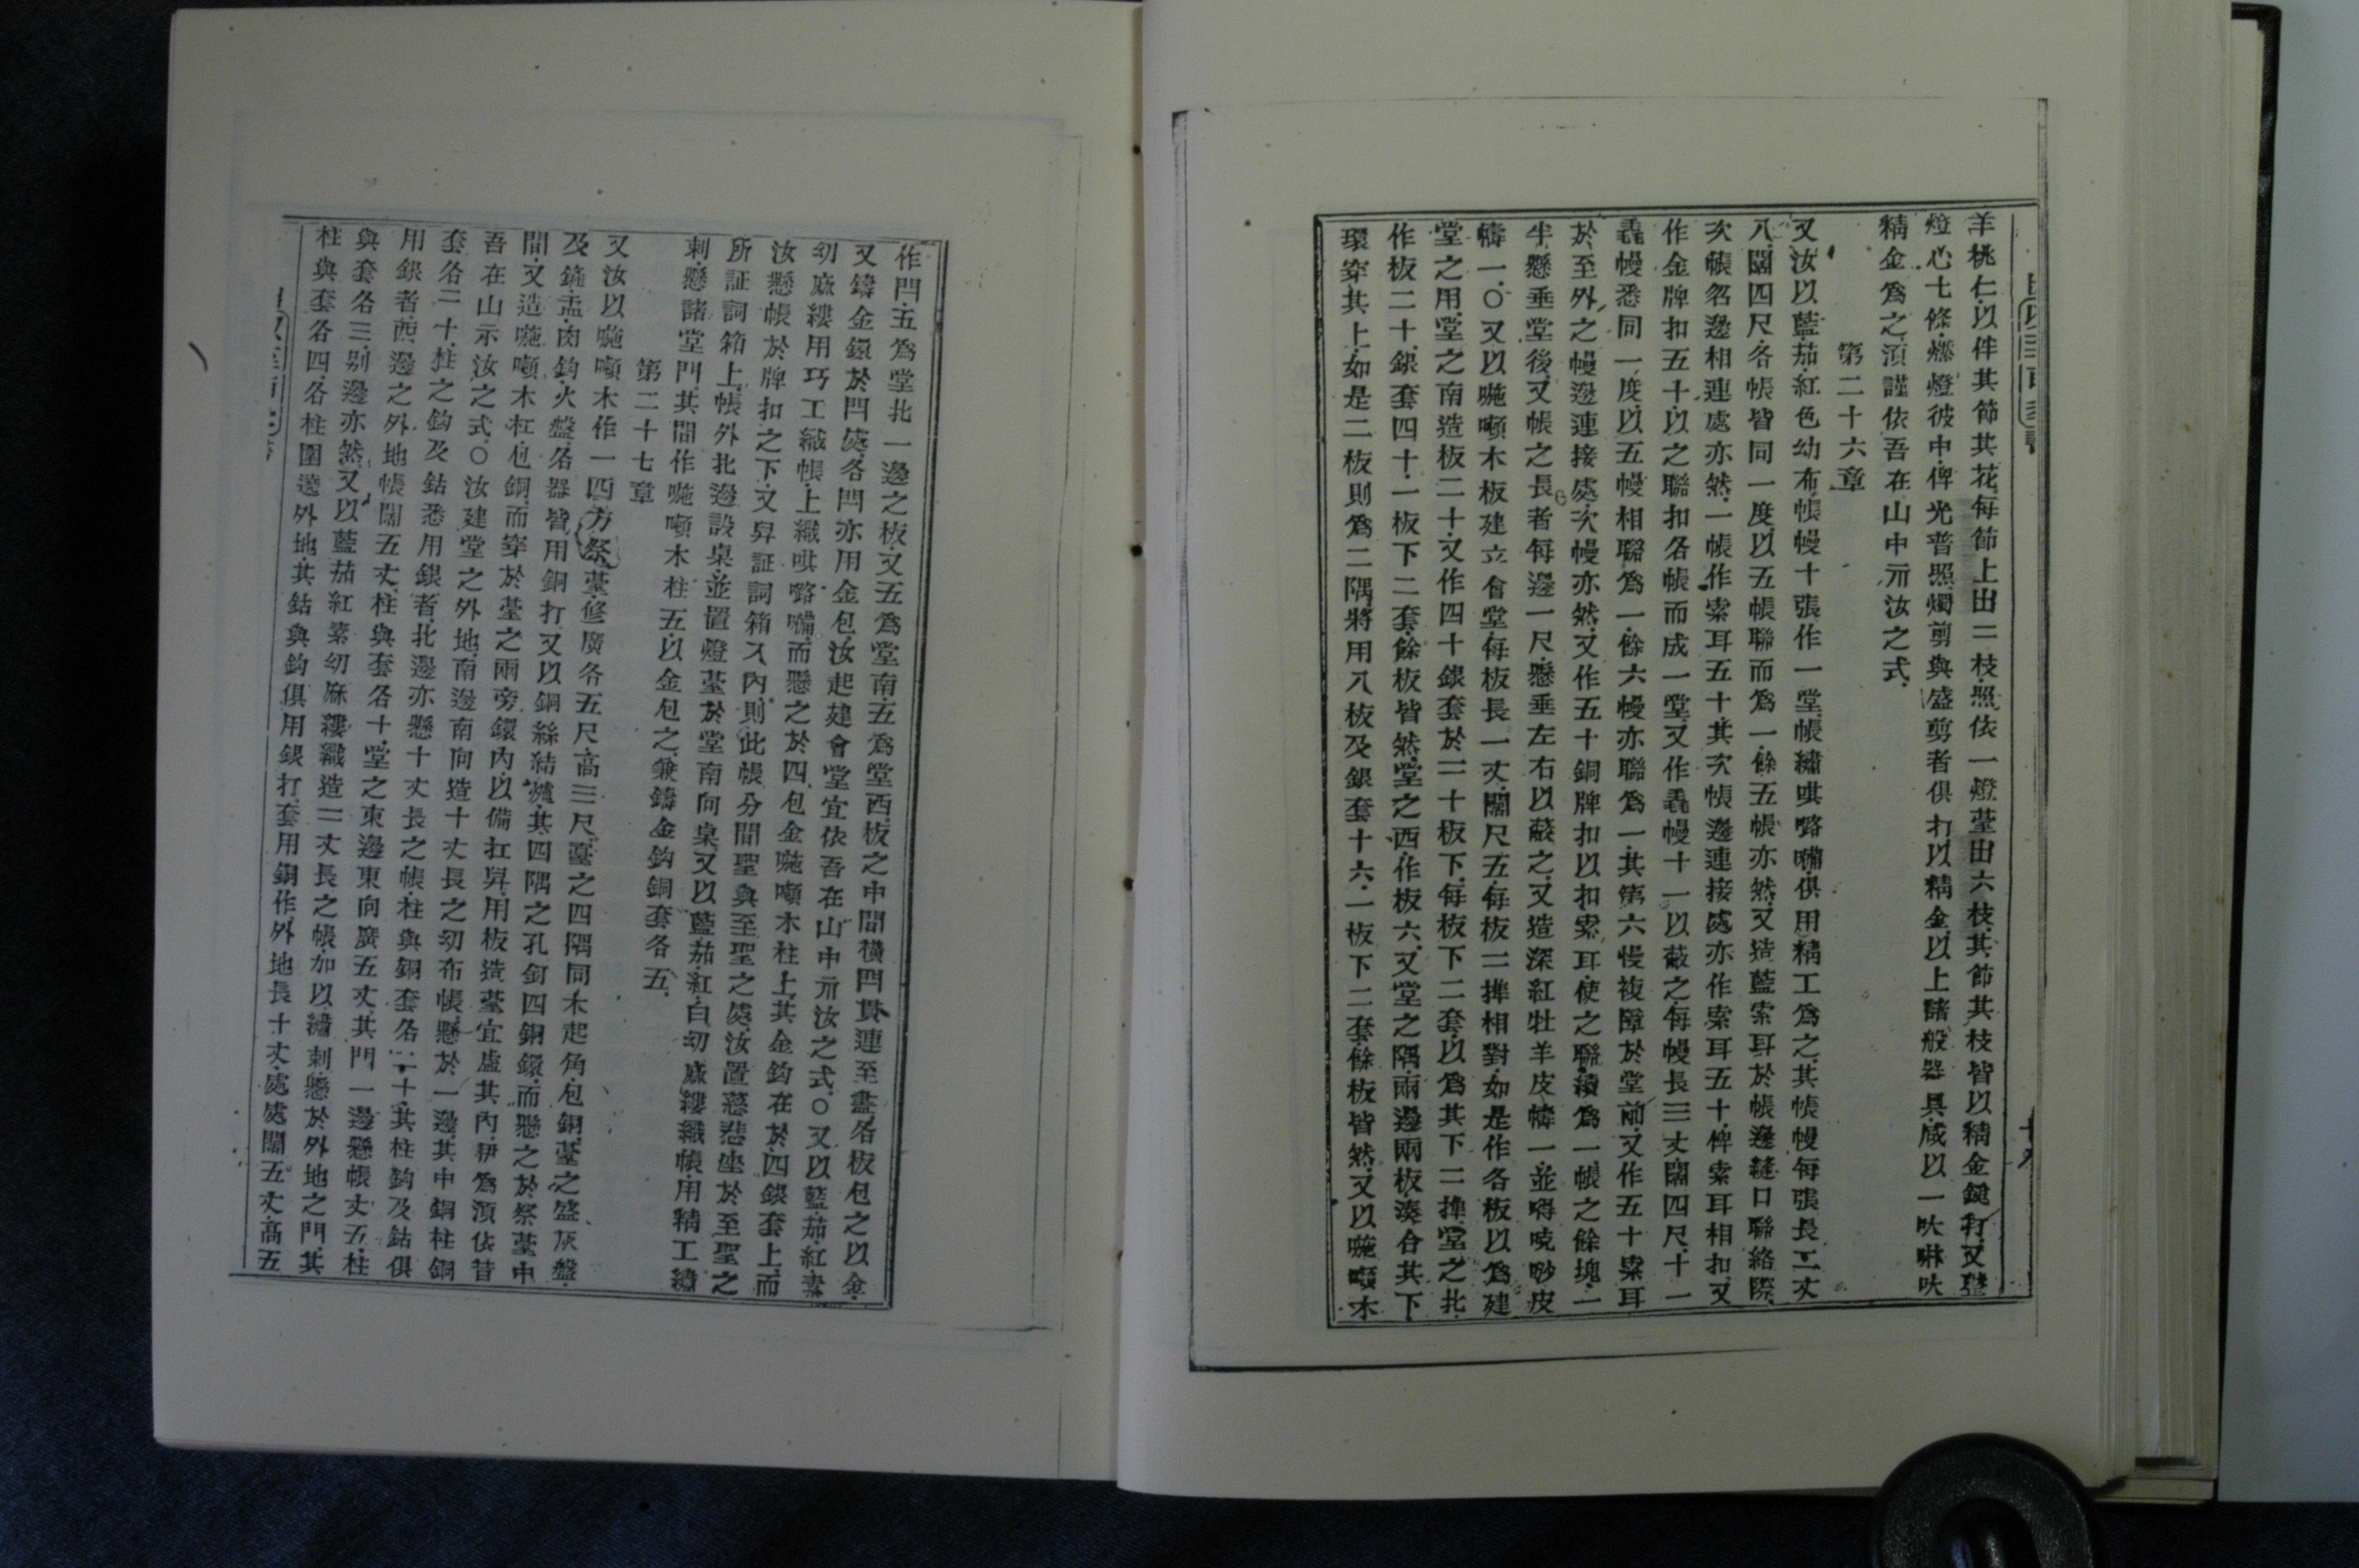 羊桃仁以伴其節其花每節上出二枝照依一燈䑓出六枝其節其枝皆以精金鎚打又整
燈心七條燃燈彼中俾光普照燭剪與盛剪者俱打以精金以上諸般器具咸以一吠啉吠
精金爲之須謹依吾在山中示汝之式
第二十六章
又汝以藍茄紅色幼布帳幔十張作一堂帳繡㖵嚕㘔俱用精工爲之其帳幔每張長二丈
八闊四尺各帳皆同一度以五帳聯而爲一餘五帳亦然又造藍索耳於帳邊縫口聯絡際
次帳各邊相連處亦然一帳作索耳五十其次帳邊連接處亦作索耳五十俾索耳相扣又
作金牌扣五十以之聯扣各帳而成一堂又作毳幔十一以蔽之每幔長三丈闊四尺十一
毳幔悉同一度以五幔相聯爲一餘六幔亦聯爲一其第六幔複障於堂前又作五十索耳
於至外之幔邊連接處次幔亦然又作五十銅牌扣以扣索耳使之聯續爲一帳之餘塊一
半懸垂堂後又帳之長者每邊一尺懸垂左右以蔽之又造深紅牡羊皮幬一並㖿唍唦皮
幬一○又以㘑㘔木板建立會堂每板長一丈闊尺五每板二榫相對如是作各板以爲建
堂之用堂之南造板二十又作四十銀套於二十板下每板下二套以爲其下二榫堂之北
作板二十銀套四十一板下二套餘板皆然堂之西作板六又堂之隅兩邊兩板湊合其下
環穿其上如是二板則爲二隅將用八板及銀套十六一板下二套餘板皆然又以㘑㘔木
作閂五爲堂北一邊之板又五爲堂南五爲堂西板之中間橫閂貫連至盡各板包之以金
又鑄金鐶於閂處各閂亦用金包汝起建會堂宜依吾在山中示汝之式○又以藍茄紅素
幼蔴縷用巧工織帳上織㖵嚕㘔而懸之於四包金㘑㘔木柱上其金鈎在於四銀套上而
汝懸帳於牌扣之下又舁証詞箱入內則此帳分間聖與至聖之處汝置慈悲座於至聖之
所証詞箱上帳外北邊設桌並置燈䑓於堂南向桌又以藍茄紅白幼蔴縷織帳用精工繡
刺懸諸堂門其間作㘑㘔木柱五以金包之兼鑄金鈎銅套各五
第二十七章
又汝以㘑㘔木作一四方祭䑓修廣各五尺高三尺䑓之四隅同木起角包銅䑓之盛灰盤
及鏟盂肉鈎火盤各器皆用銅打又以銅絲結爐其四隅之孔釘四銅鐶而懸之於祭䑓中
間又造㘑㘔木杠包銅而穿於䑓之兩旁鐶內以備扛舁用板造䑓宜虛其內伊爲須依昔
吾在山示汝之式○汝建堂之外地南邊南向造十丈長之幼布帳懸於一邊其中銅柱銅
套各二十柱之鈎及鈷悉用銀者北邊亦懸十丈長之帳柱與銅套各二十其柱鈎及鈷俱
用銀者西邊之外地帳闊五丈柱與套各十堂之東邊東向廣五丈其門一邊懸帳丈五柱
與套各三別邊亦然又以藍茄紅素幼蔴縷織造二丈長之帳加以繡刺懸於外地之門其
柱與套各四各柱圍遶外地其鈷與鈎俱用銀打套用銅作外地長十丈處處闊五丈高五